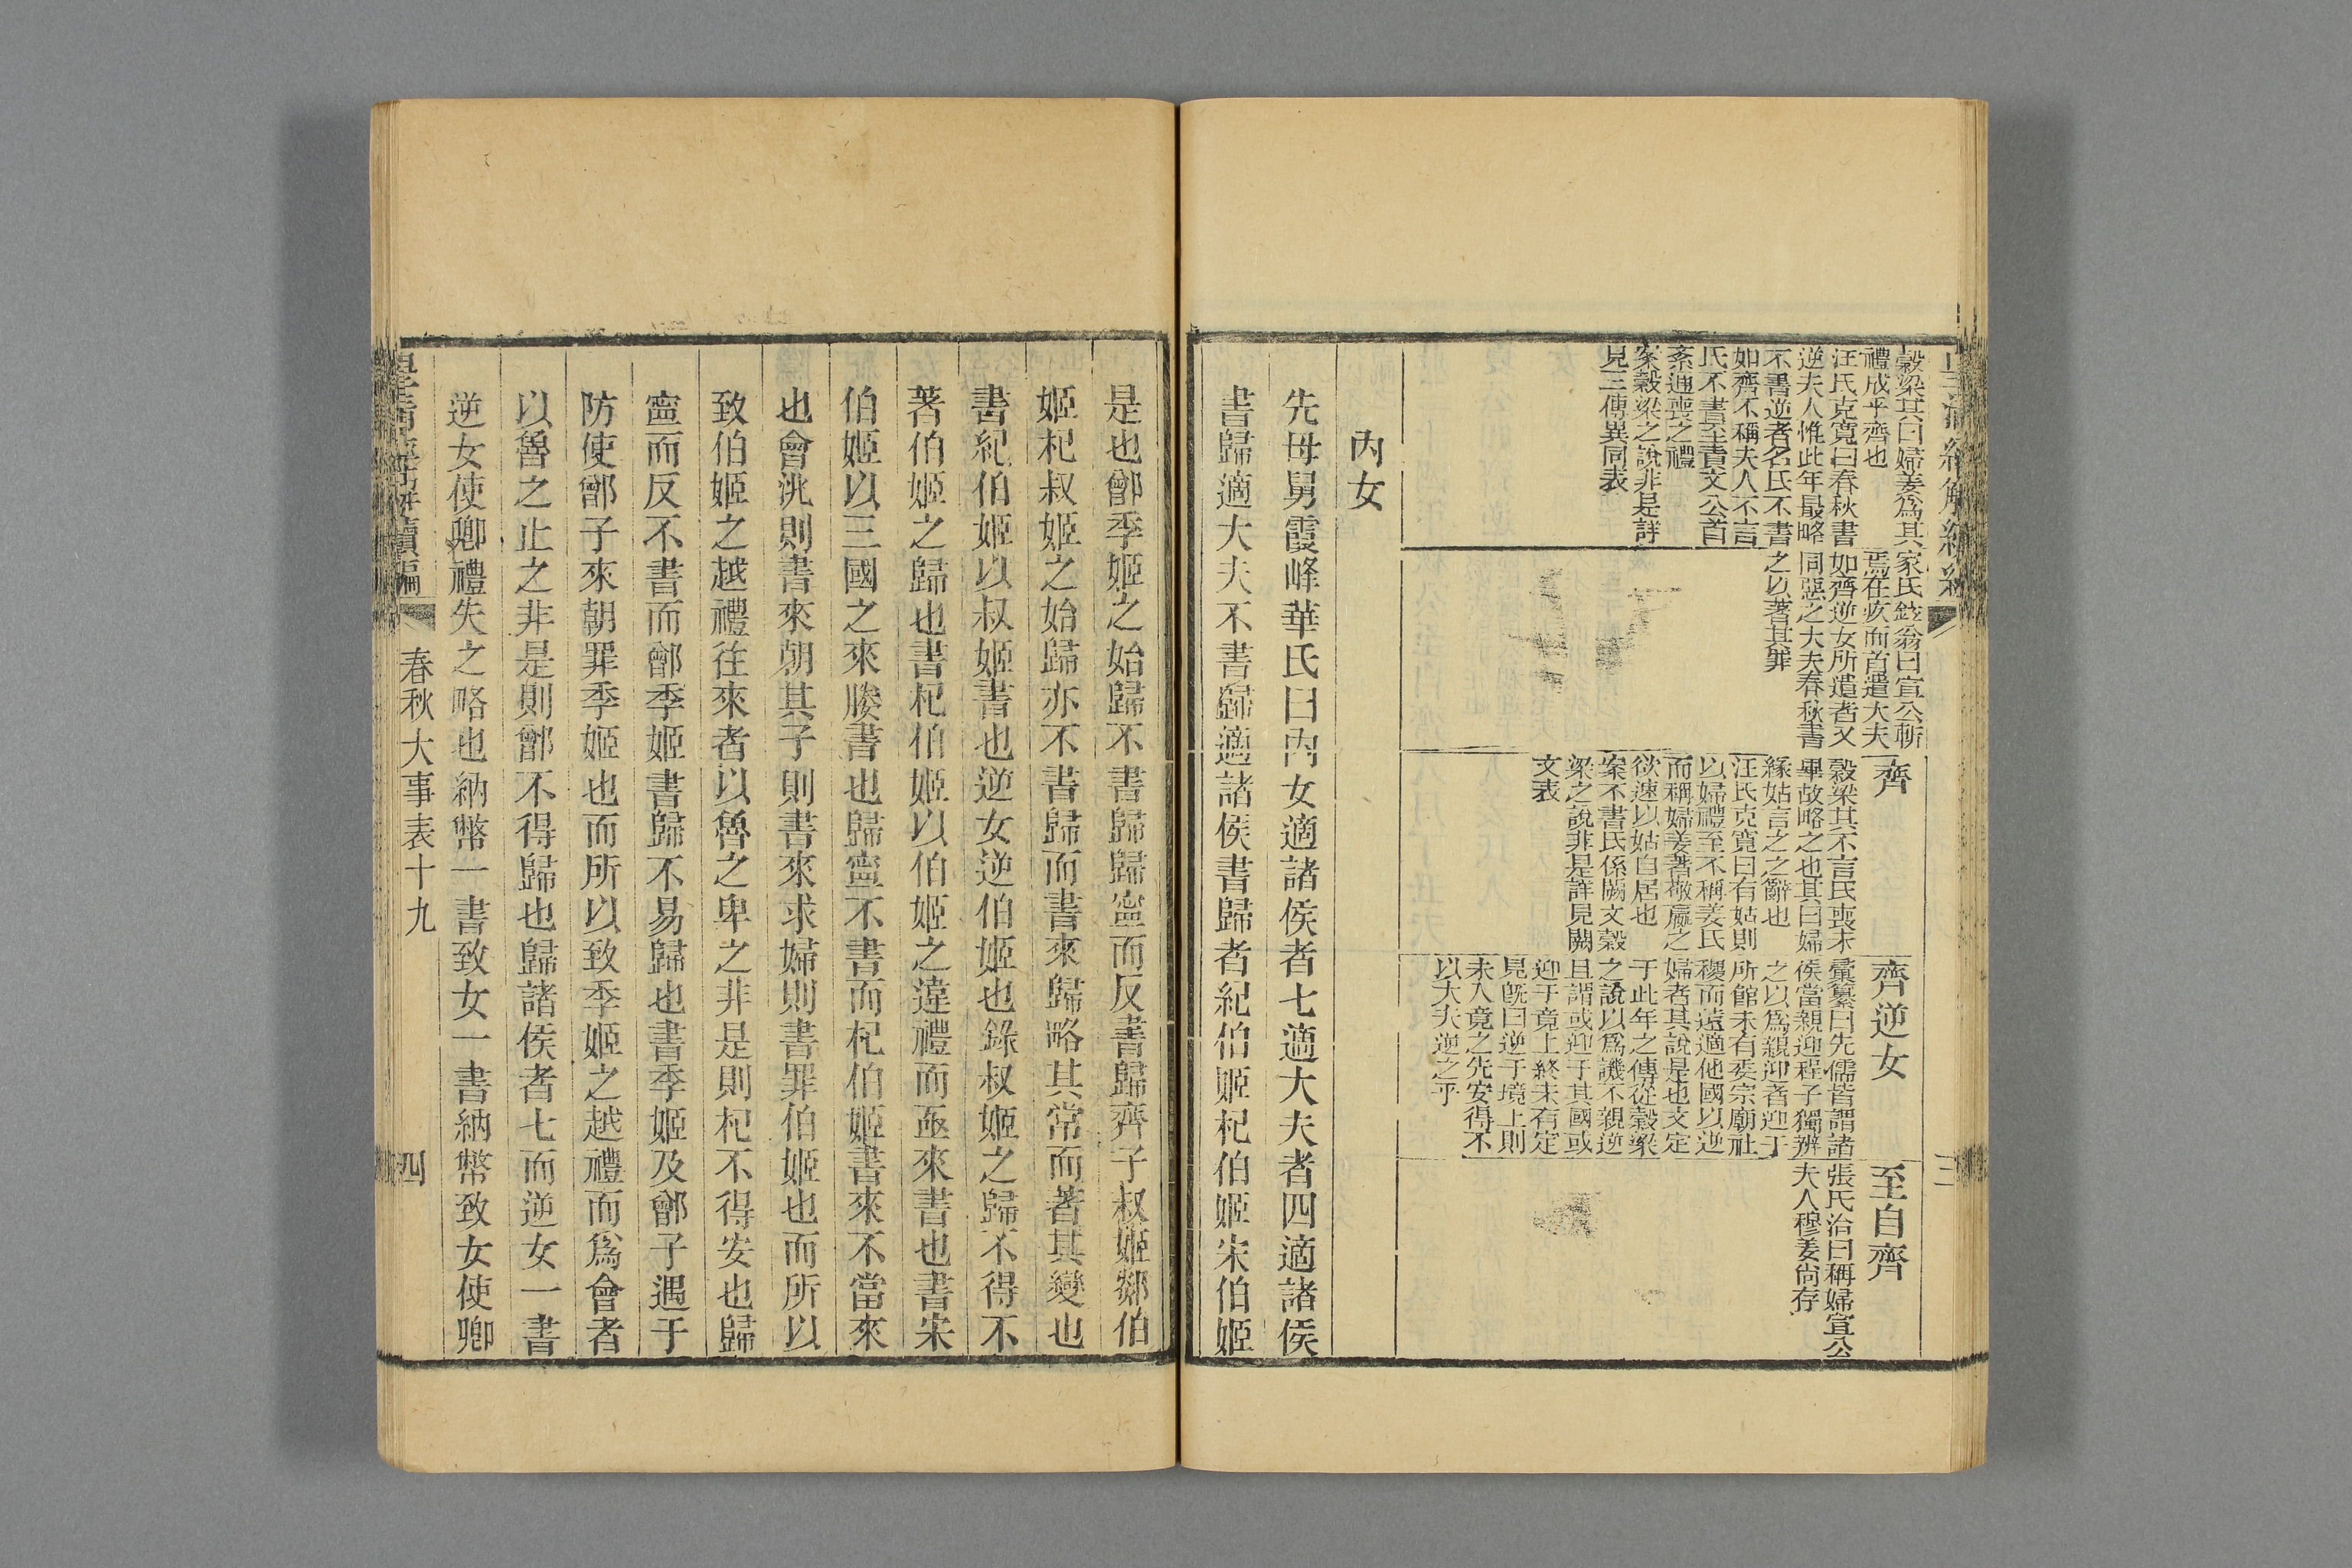 穀梁其曰婦姜爲其
禮成乎齊也
汪氏克寬曰春秋書
逆夫人惟此年最略
不書逆者名氏不書
如齊不稱夫人不言
氏不書至責文公首
紊通喪之禮
案穀梁之說非是詳
見三傳異同表
家氏鉉翁曰宣公斬
焉在疚而首遣大夫
如齊逆女所遣者又
同惡之大夫春秋書
之以著其罪
齊
穀梁其不言氏喪未
畢故略之也其曰婦
緣姑言之之辭也
汪氏克寬曰有姑則
以婦禮至不稱姜氏
而稱婦姜著敬嬴之
欲速以姑自居也
案不書氏係闕文穀
梁之說非是詳見闕
文表
齊逆女
彙纂曰先儒皆謂諸
侯當親迎程子獨辨
之以爲親迎者迎于
所館未有委宗廟社
稷而遠適他國以逆
婦者其說是也文定
于此年之傳從穀梁
之說以爲譏不親逆
且謂或迎于其國或
迎于竟上終未有定
見旣曰逆于境上則
未入竟之先安得不
以大夫逆之乎
至自齊
張氏洽曰稱婦宣公
夫人穆姜尙存
三
內女
先母舅霞峰華氏曰內女適諸侯者七適大夫者四適諸侯
書歸適大夫不書歸適諸侯書歸者紀伯姬杞伯姬宋伯姬
是也鄫季姬之始歸不書歸歸寍而反書歸齊子叔姬郯伯
姬杞叔姬之始歸亦不書歸而書來歸略其常而著其變也
書紀伯姬以叔姬書也逆女逆伯姬也錄叔姬之歸不得不
著伯姬之歸也書杞伯姬以伯姬之違禮而亟來書也書宋
伯姬以三國之來媵書也歸寍不書而杞伯姬書來不當來
也會洮則書來朝其子則書來求婦則書罪伯姬也而所以
致伯姬之越禮往來者以魯之卑之非是則杞不得安也歸
寍而反不書而鄫季姬書歸不易歸也書季姬及鄫子遇于
防使鄫子來朝罪季姬也而所以致季姬之越禮而爲會者
以魯之止之非是則鄫不得歸也歸諸侯者七而逆女一書
逆女使卿禮失之略也納幣一書致女一書納幣致女使卿
皇淸經解續編
春秋大事表十九
四